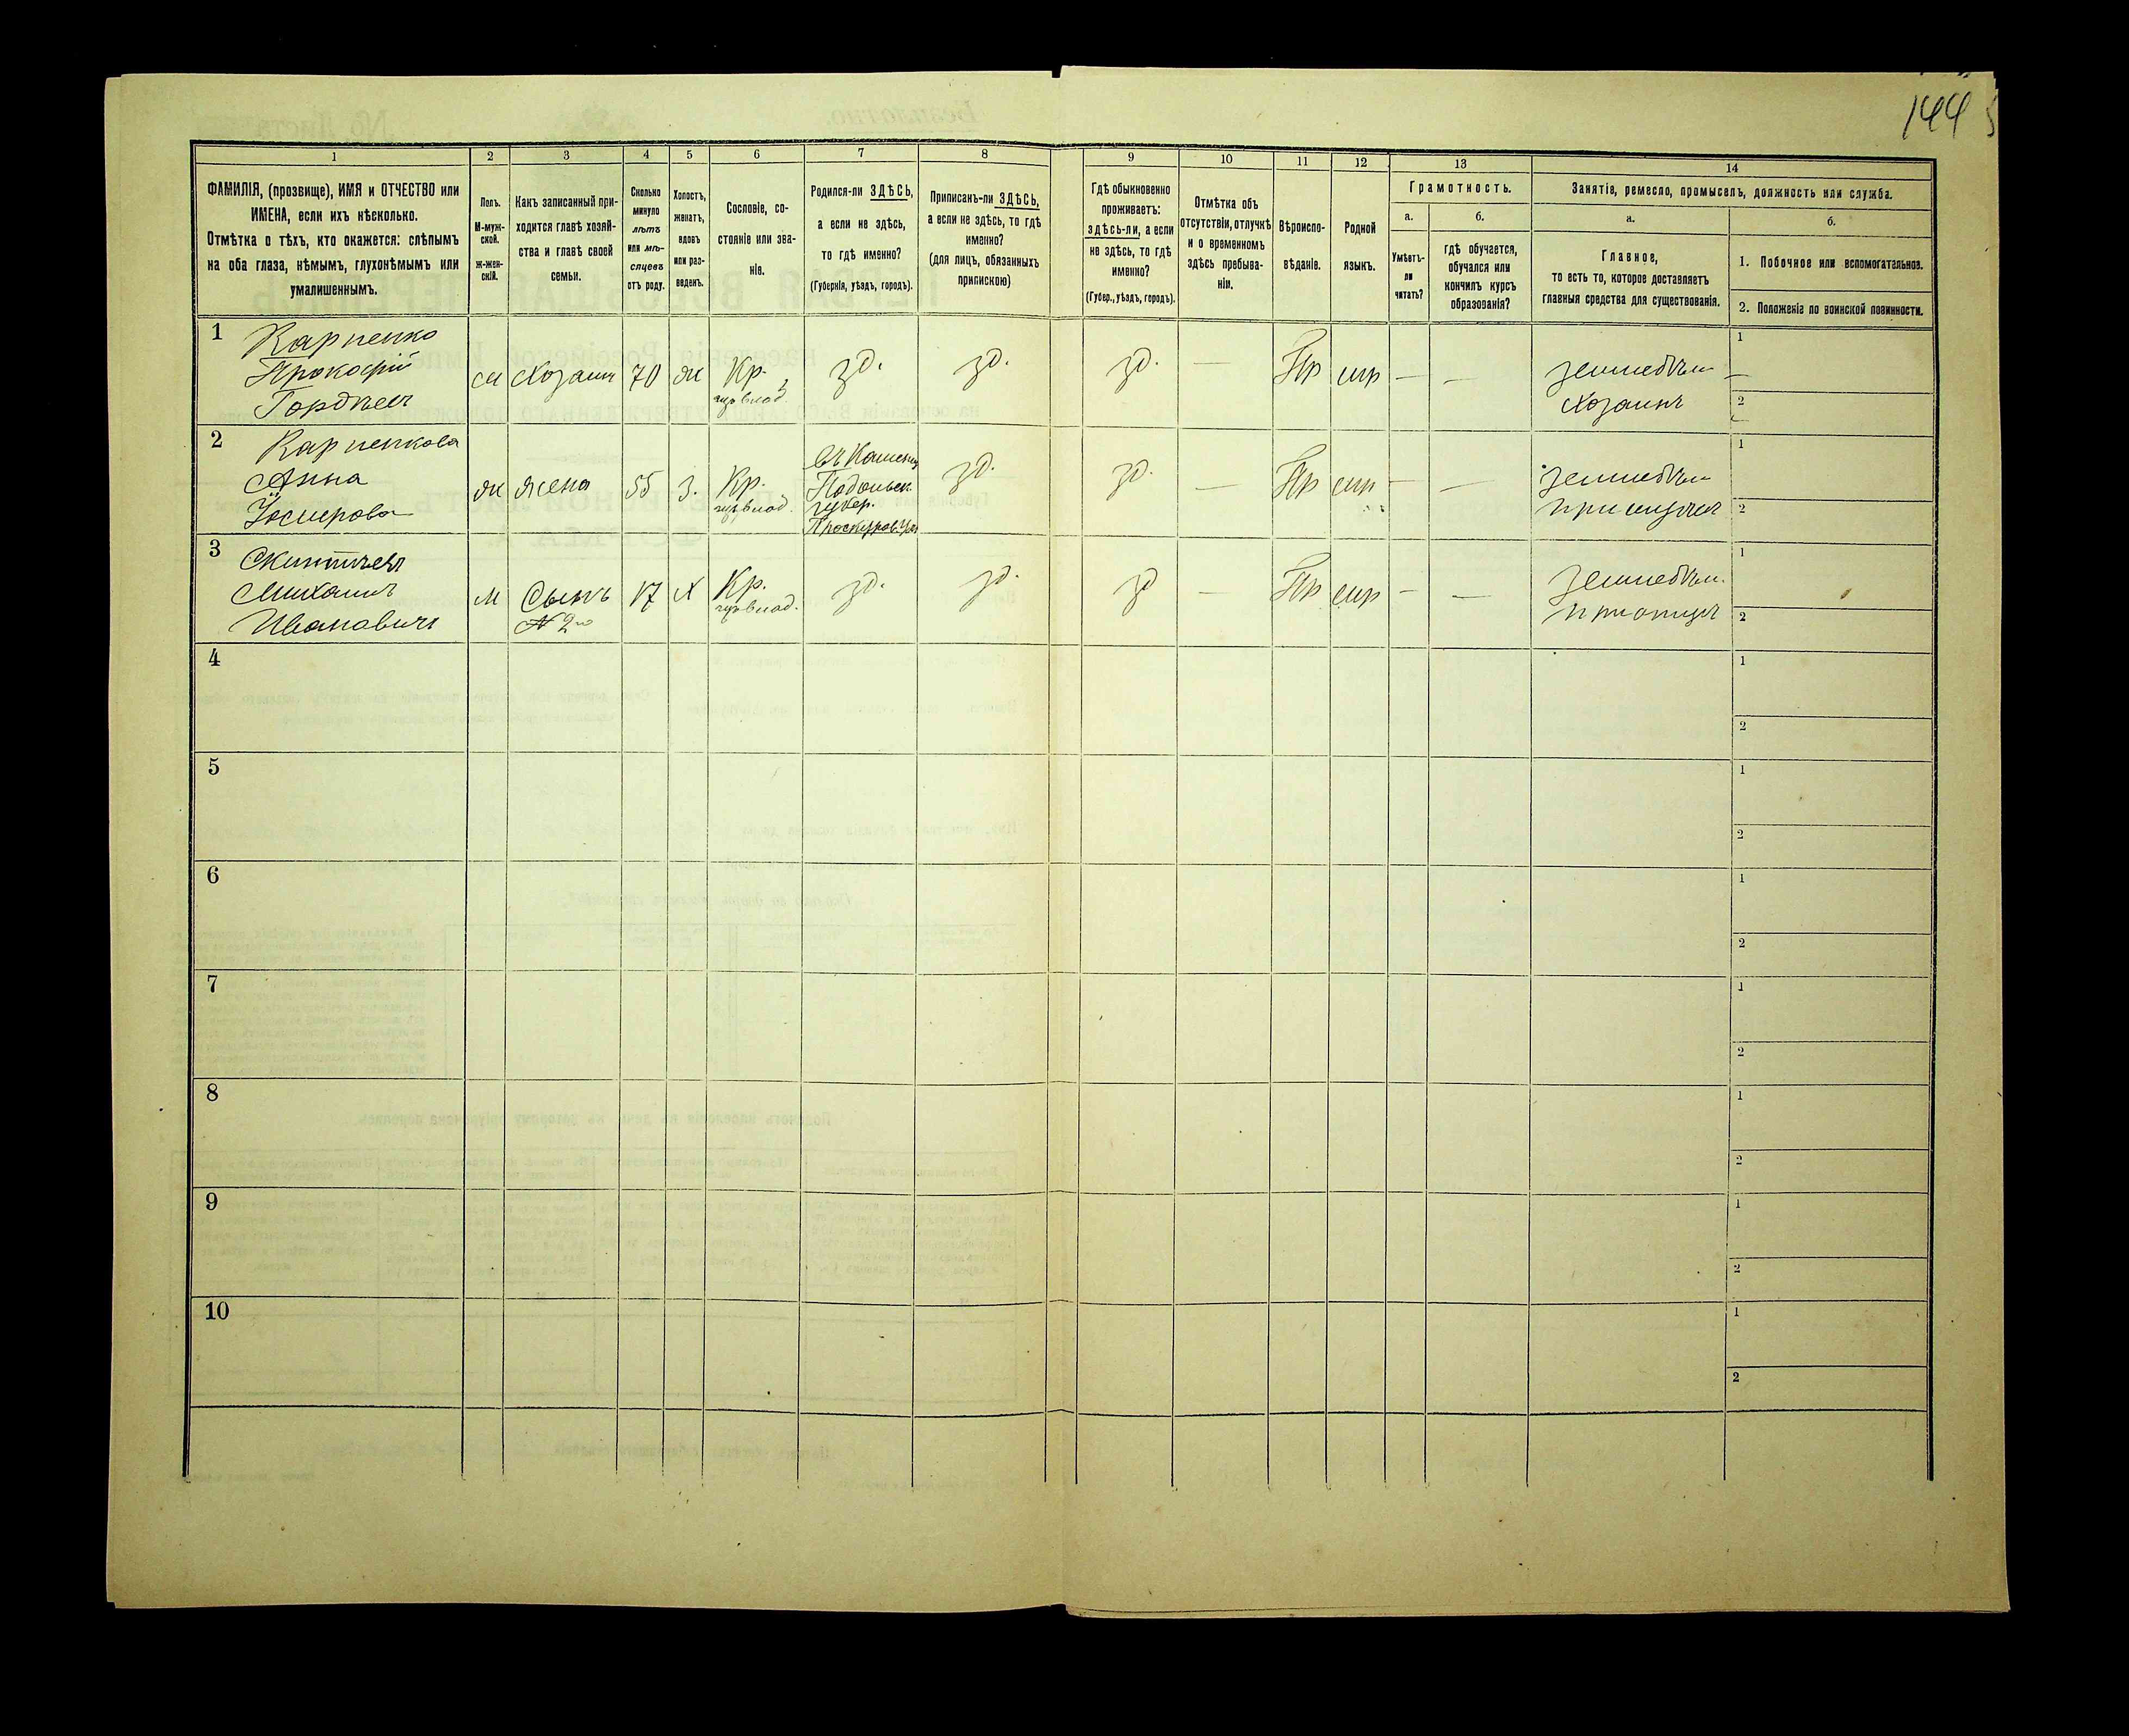 144
1
2
3
4
5
6
7
8
9
10
11
12
13
14
ФАМИЛІЯ, (прозвище), ИМЯ и ОТЧЕСТВО или
ИМЕНА, если ихъ нѣсколько.
Отмѣтка о тѣхъ, кто окажется: слѣпымъ
на оба глаза, нѣмымъ, глухонѣмымъ или
умалишеннымъ.
Полъ.
М-муж-
ской.
ж-жен-
скій.
Какъ записанный при-
ходится главѣ хозяй-
ства и главѣ своей
семьи.
Сколько
минуло
лѣтъ
или мѣ-
сяцевъ
отъ роду.
Холостъ,
женатъ,
вдовъ
или раз-
веденъ.
Сословіе, со-
стояніе или зва-
ніе.
Родился-ли ЗДѢСЬ,
а если не здѣсь,
то гдѣ именно?
(Губернія, уѣздъ, городъ).
Приписанъ-ли ЗДѢСЬ,
а если не здѣсь, то гдѣ
именно?
(для лицъ, обязанныхъ
припискою)
Гдѣ обыкновенно
проживаетъ:
здѣсь-ли, а если
не здѣсь, то гдѣ
именно?
(Губер., уѣздъ, городъ).
Отмѣтка объ
отсутствіи, отлучкѣ
и о временномъ
здѣсь пребыва-
ніи.
Вѣроиспо-
вѣданіе.
Родной
языкъ.
Грамотность.
а.
Умѣетъ-
ли
читать?
б.
гдѣ обучается,
обучался или
кончилъ курсъ
образованія?
Занятіе, ремесло, промыселъ, должность или служба.
а.
Главное,
то есть то, которое доставляетъ
главныя средства для существованія.
б.
1. Побочное или вспомогательное.
2. Положеніе по воинской повинности.
1
Карпенко
Прокофій
м Хозаин 70 ж Кр. зд. зд. зд. — Пр — —
Хозаинъ
1
—
2
2
Карпенкова
Анна
ж жена 55 З. Кр.
Подольск
губер.
зд. зд. — Пр — —
1
2
3
Михаилъ
Ивановичъ
М Сынъ 17 Х Кр. зд. зд. зд — Пр — —
№ 2го
1
2
4
1
2
5
1
2
6
1
2
7
1
2
8
1
2
9
1
2
10
1
2